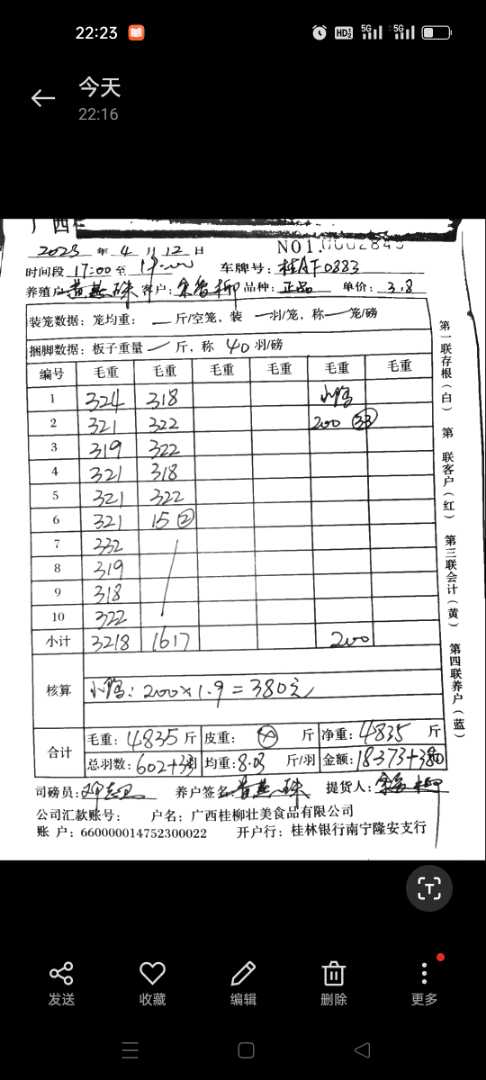 22:23 HD 5G 5G
今天
22:16
广西
2023 年 4 月 12 日 NO1.0002845
时间段 17:00 至 车牌号: 0383
养殖户 黄 珠 客户: 柳 品种: 正品 单价: 3.8
装笼数据: 笼均重: — 斤/空笼, 装 — 羽/笼, 称 — 笼/磅
捆脚数据: 板子重量 — 斤, 称 40 羽/磅
编号 毛重 毛重 毛重 毛重 毛重 毛重
1 324 318 小鸭
2 321 322 200 33
3 319 322
4 321 318
5 321 322
6 321 15 ②
7 332
8 319
9 318
10 322
小计 3218 1617 200
核算 小鸭: 200×1.9=380元
合计 毛重: 4835 斤 皮重: 斤 净重: 4835 斤
总羽数: 602+33 均重: 8.03 斤/羽 金额: 18373+380
司磅员: 邓 养户签名 黄 珠 提货人: 柳
公司汇款账号: 户名: 广西桂柳壮美食品有限公司
账 户: 660000014752300022 开户行: 桂林银行南宁隆安支行
第一联存根(白) 第 联客户(红) 第三联会计(黄) 第四联养户(蓝)
T
发送 收藏 编辑 删除 更多